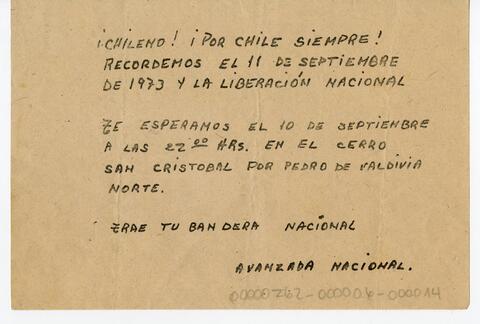 ¡CHILENO! ¡POR CHILE SIEMPRE!
RECORDEMOS EL 11 DE SEPTIEMBRE
DE 1973 Y LA LIBERACIÓN NACIONAL
TE ESPERAMOS EL 10 DE SEPTIEMBRE
A LAS 22 00 HRS. EN EL CERRO
SAN CRISTOBAL POR PEDRO DE VALDIVIA
NORTE.
TRAE TU BANDERA NACIONAL
AVANZADA NACIONAL.
00000262-000006-000014